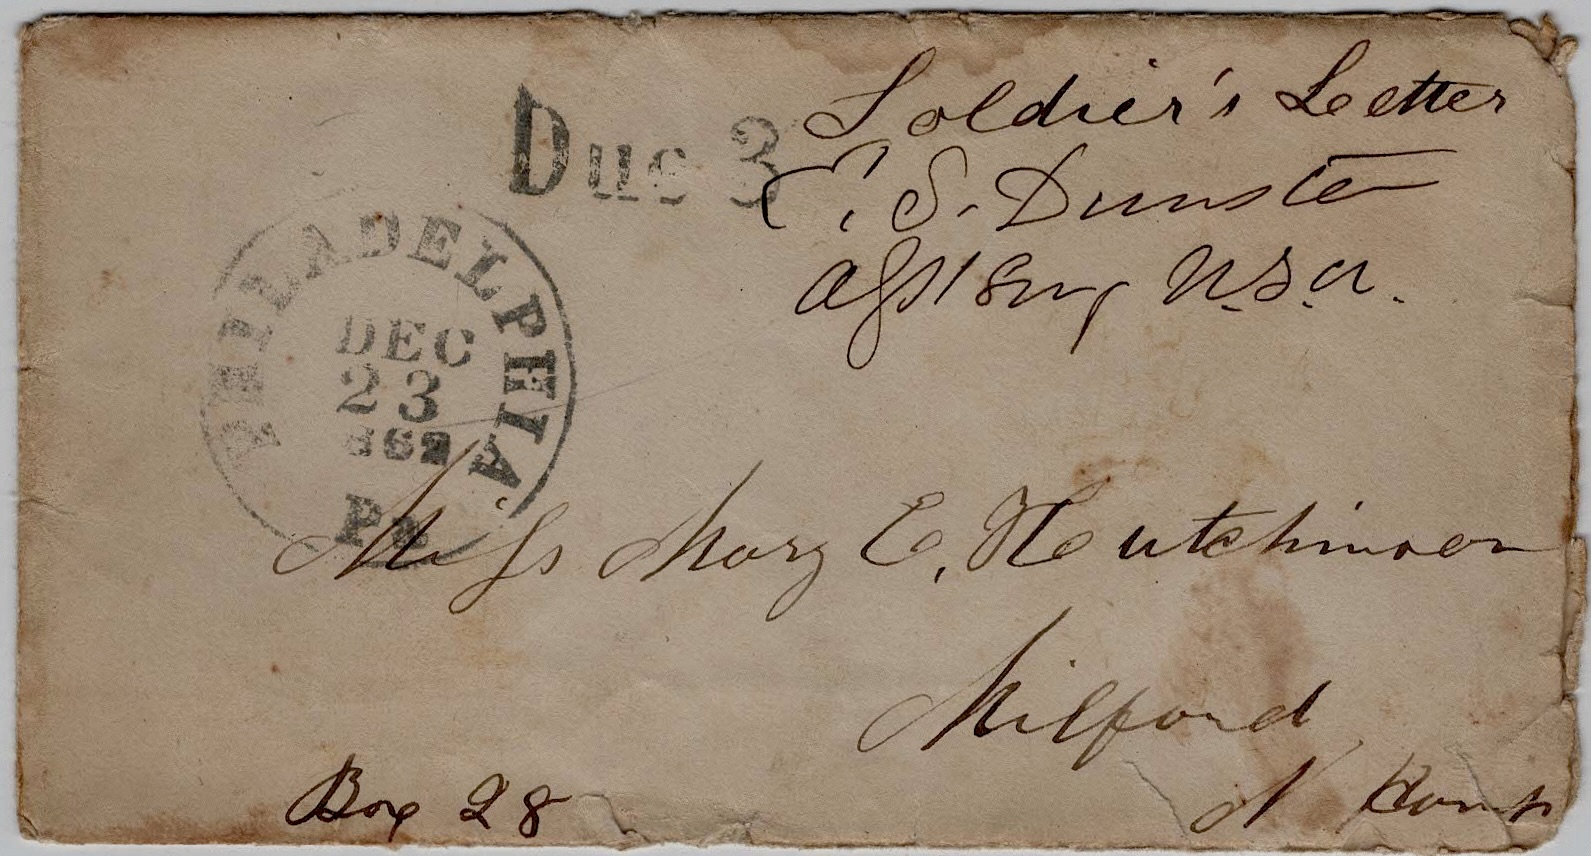 Due 3
Soldier's Letter
E. S. Dunster
Asst Surg U.S.A.
PHILADELPHIA
DEC
23
1862
Pa
Miss Mary E. Hutchinson
Milford
N Hamp
Box 28